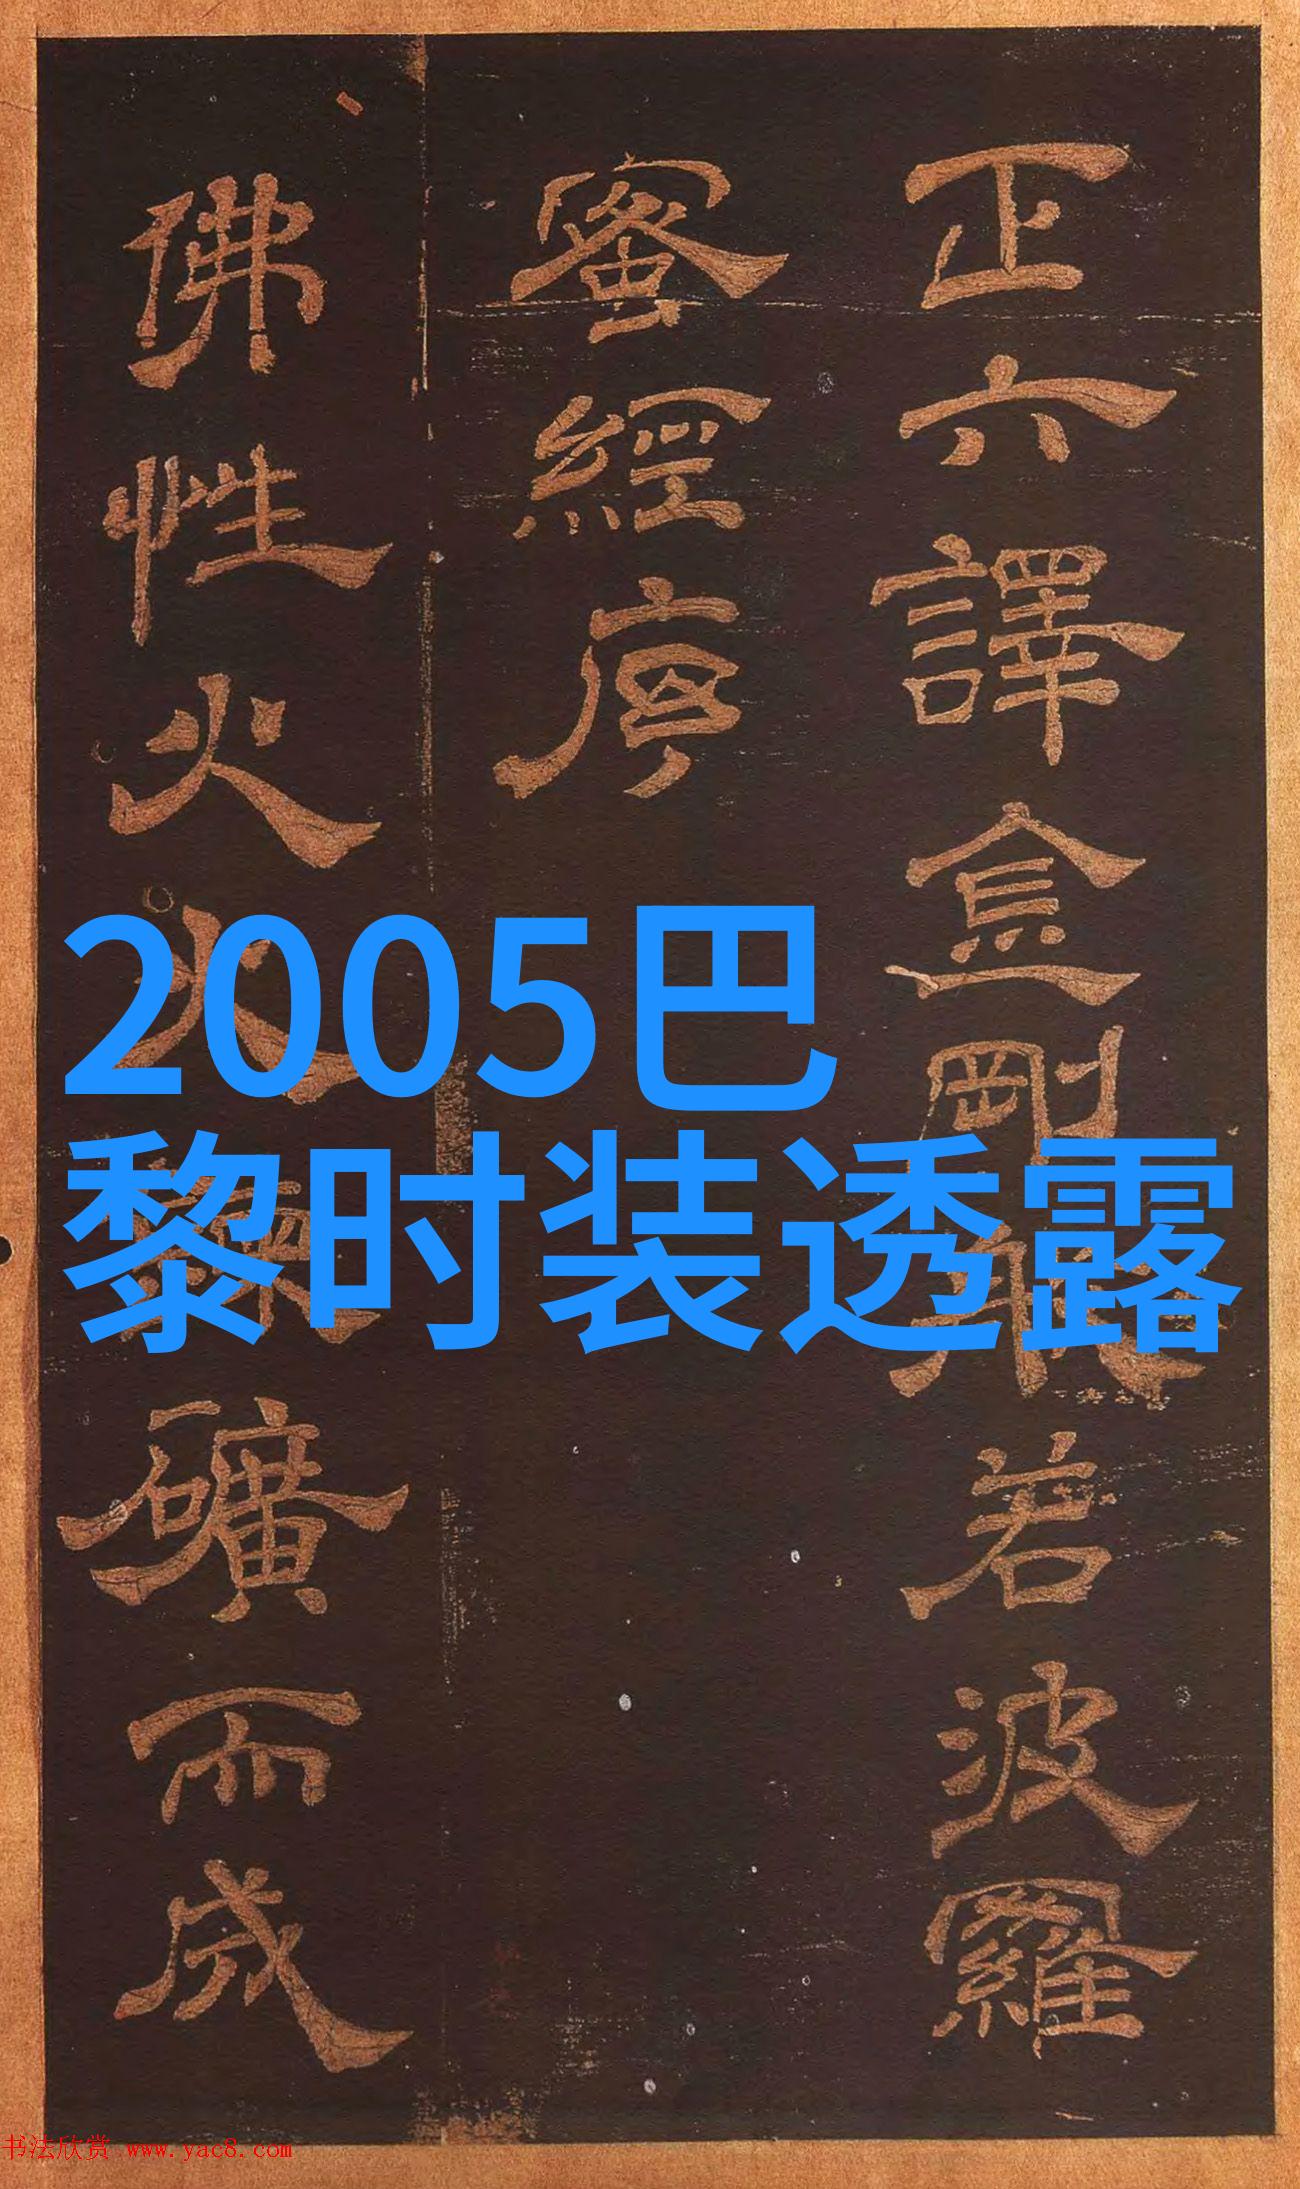 正六譯金剛般若波羅
蜜經序
佛性火礦而成
2005巴
黎时装透露
书法欣赏 www.yac8.com